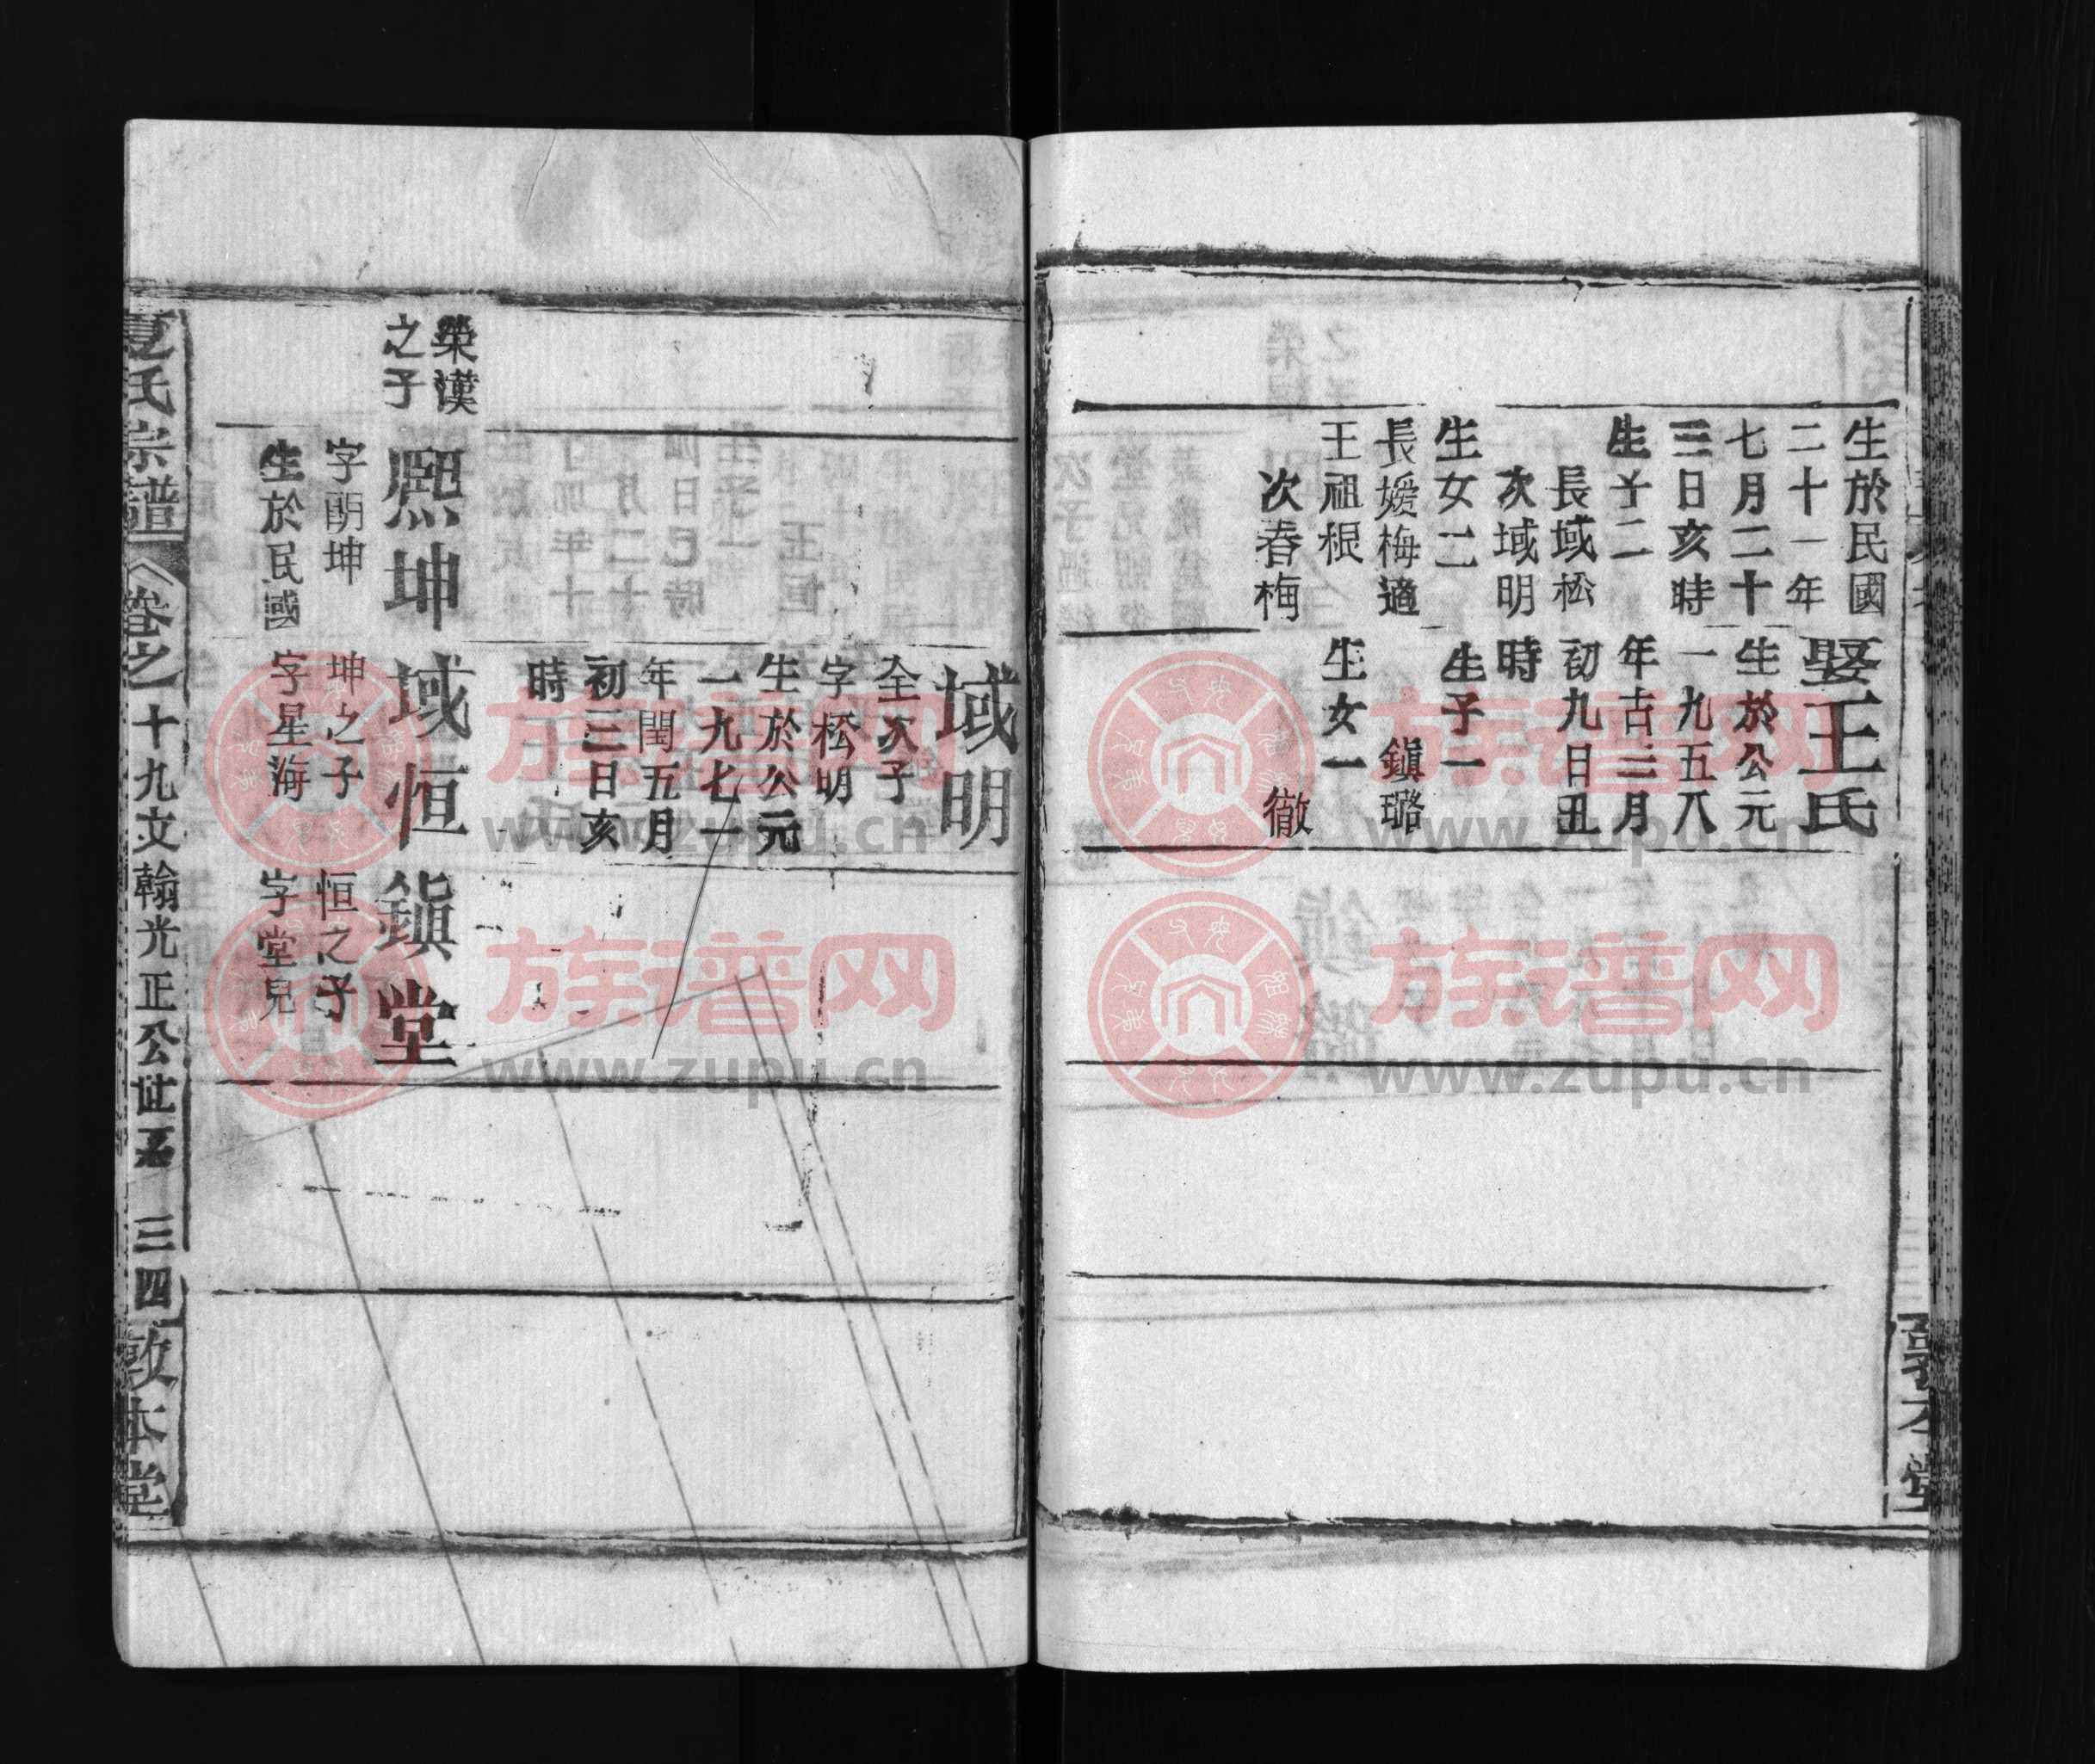 生於民國
二十一年
七月二十
三日亥時
生子二
長域松
次域明
生女二
長嫒梅適
王祖根
次春梅
娶王氏
生於公元
一九五八
年古三月
初九日丑
時
生子一
鎮璐
生女一
徹
敦本堂
域明
仝次子
字松明
生於公元
一九七一
年閏五月
初三日亥
時
榮漢
之子
熙坤
字朗坤
生於民國
域恒
坤之子
字星海
鎮堂
恒之子
字堂兒
夏氏宗譜
卷之十九文翰光正公世系 三四
敦本堂
族谱网
www.zupu.cn
族谱网
www.zupu.cn
族谱网
www.zupu.cn
族谱网
www.zupu.cn